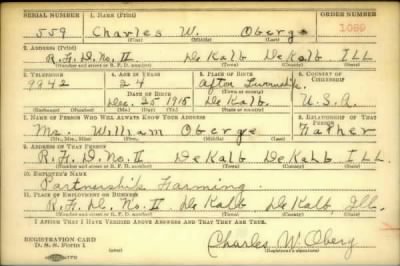 SERIAL NUMBER 1. NAME (Print) ORDER NUMBER
559 Charles W. Oberg 1080
(First) (Middle) (Last)
2. ADDRESS (Print)
R.F.D. No. II De Kalb De Kalb ILL
(Number and street or R. F. D. number) (Town) (County) (State)
3. TELEPHONE 4. AGE IN YEARS 5. PLACE OF BIRTH 6. COUNTRY OF CITIZENSHIP
9942 Afton Township
DATE OF BIRTH (Town or county)
Dec. 25 1915 De Kalb U.S.A.
(Exchange) (Number) (Mo.) (Day) (Yr.) (State or country)
7. NAME OF PERSON WHO WILL ALWAYS KNOW YOUR ADDRESS 8. RELATIONSHIP OF THAT PERSON
Mr. William Oberg Father
(Mr., Mrs., Miss) (First) (Middle) (Last)
9. ADDRESS OF THAT PERSON
R.F.D. No. II De Kalb De Kalb ILL.
(Number and street or R. F. D. number) (Town) (County) (State)
10. EMPLOYER'S NAME
Partnership Farming.
11. PLACE OF EMPLOYMENT OR BUSINESS
R.F.D. No. II De Kalb De Kalb, Ill.
(Number and street or R. F. D. number) (Town) (County) (State)
I AFFIRM THAT I HAVE VERIFIED ABOVE ANSWERS AND THAT THEY ARE TRUE.
REGISTRATION CARD
D. S. S. Form 1 Charles W. Oberg
(Registrant's signature)